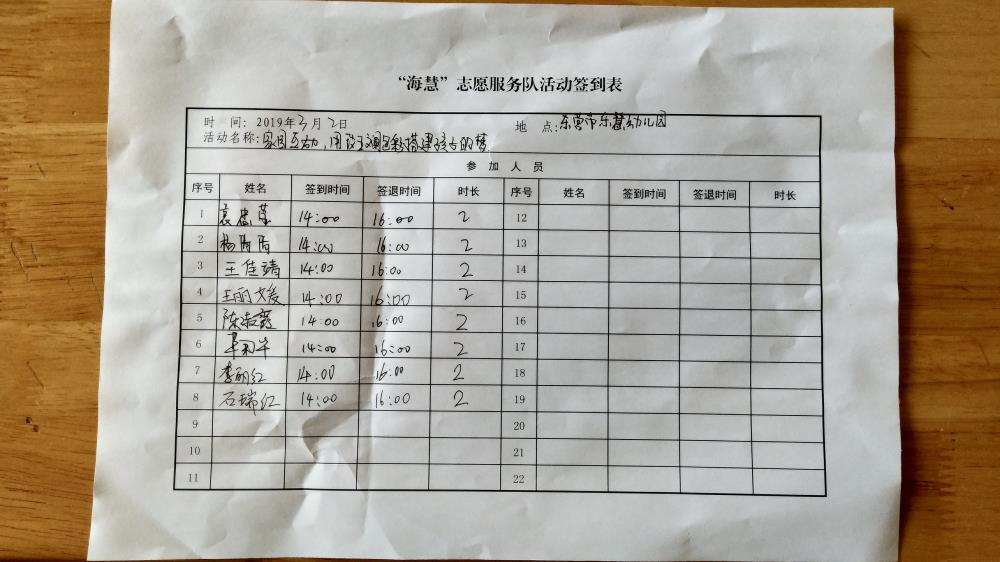 “海慧”志愿服务队活动签到表
时 间: 2019年3月2日 地 点:东营市东慧幼儿园
活动名称:家园互动,
参 加 人 员
序号 姓名 签到时间 签退时间 时长 序号 姓名 签到时间 签退时间 时长
1 14:00 16:00 2 12
2 14:00 16:00 2 13
3 王佳靖 14:00 16:00 2 14
4 王丽媛 14:00 16:00 2 15
5 14:00 16:00 2 16
6 14:00 16:00 2 17
7 李丽红 14:00 16:00 2 18
8 石瑞红 14:00 16:00 2 19
9 20
10 21
11 22